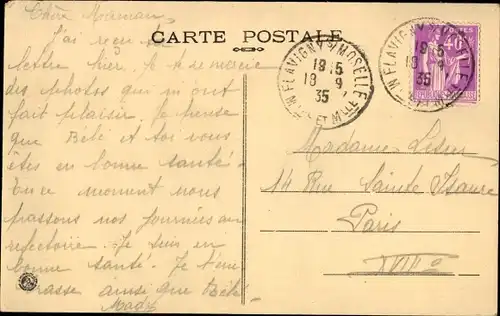 Chère Maman
CARTE POSTALE
J'ai reçu ta
lettre hier. Je te remercie
des photos qui m'ont
fait plaisir. Je pense
que Bébé et toi vous
êtes en bonne santé.
En ce moment nous
passons nos journées au
refectoire. Je suis en
bonne santé. Je t'em
brasse ainsi que Bébé
Mady
FLAVIGNY S/MOSELLE
19 15
18 - 9
35
FLAVIGNY S/MOSELLE
19 15
18 - 9
35
40
Madame
14 Rue Sainte Isaure
Paris
XVIIIe